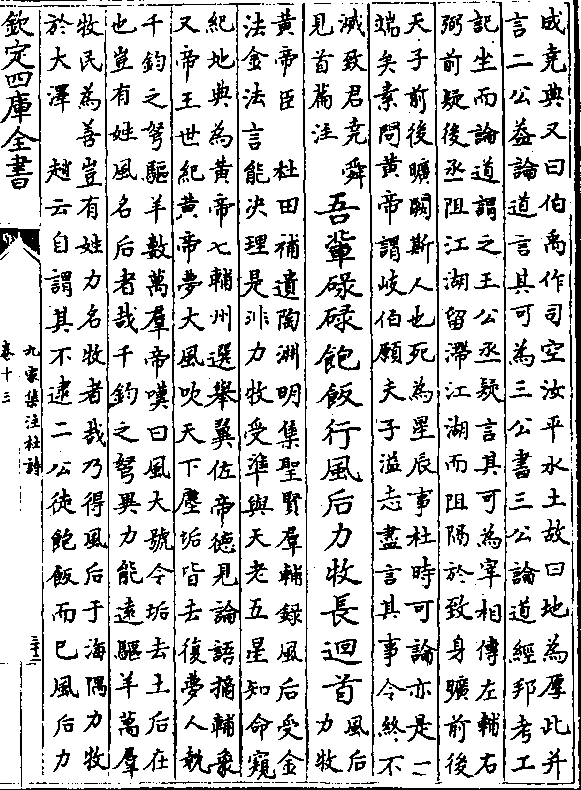 成堯典又曰伯禹作司空汝平水土故曰地為厚此并
言二公益論道言其可為三公書三公論道經邦考工
記坐而論道謂之王公丞疑言其可為宰相傳左輔右
弼前疑後丞阻江湖留滯江湖而阻隔於致身曠前後
天子前後曠闕斯人也死為星辰事杜時可論亦是一
端矣素問黃帝謂岐伯願夫子溢志盡言其事令終不
滅致君堯舜
見首篇注
吾輩碌碌飽飯行風后力牧長迴首
風后
力牧
黃帝臣 杜田補遺陶淵明集聖賢羣輔録風后受金
法金法言能決理是非力牧受準與天老五星知命窺
紀地典為黃帝七輔州選舉翼佐帝德見論語摘輔象
又帝王世紀黃帝夢大風吹天下塵垢皆去復夢人執
千鈞之弩驅羊數萬羣帝嘆曰風大號令垢去土后在
也豈有姓風名后者哉千鈞之弩異力能逺驅羊萬羣
牧民為善豈有姓力名牧者哉乃得風后于海隅力牧
於大澤 趙云自謂其不逮二公徒飽飯而已風后力
欽定四庫全書
九家集注杜詩
卷十三